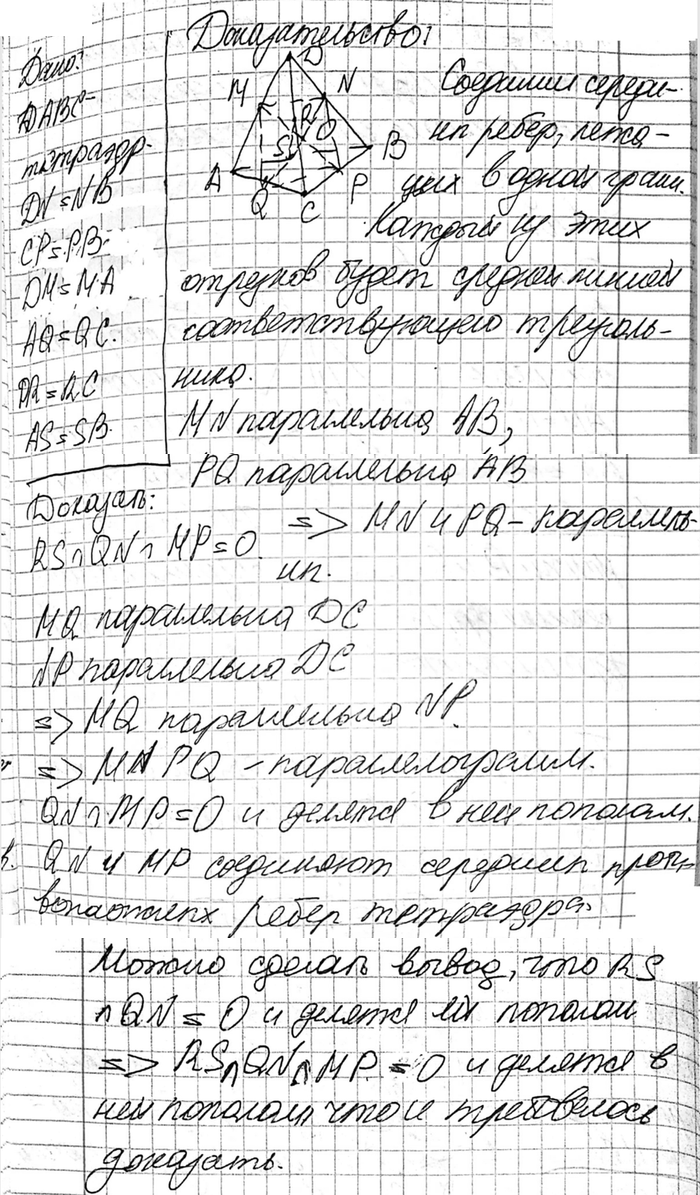 Доказательство:
Дано:
DABC -
тетраэдр.
DN = NB
CP = PB.
DM = MA
AQ = QC.
DR = RC
AS = SB.
Доказать:
RS ∩ QN ∩ MP = O.
D
M
N
R
O
S
A
B
Q
P
C
Соединим середи-
ны ребер, лежа-
щих в одной грани.
Каждый из этих
отрезков будет средней линией
соответствующего треуголь-
ника.
MN параллельна AB,
PQ параллельна AB
=> MN и PQ - параллель-
ны.
MQ параллельна DC
NP параллельна DC
=> MQ параллельна NP.
=> MNPQ - параллелограмм.
QN ∩ MP = O и делятся в ней пополам.
QN и MP соединяют середины проти-
воположных ребер тетраэдра.
Можно сделать вывод, что RS
∩ QN = O и делятся ей пополам
=> RS ∩ QN ∩ MP = O и делятся в
ней пополам, что и требовалось
доказать.